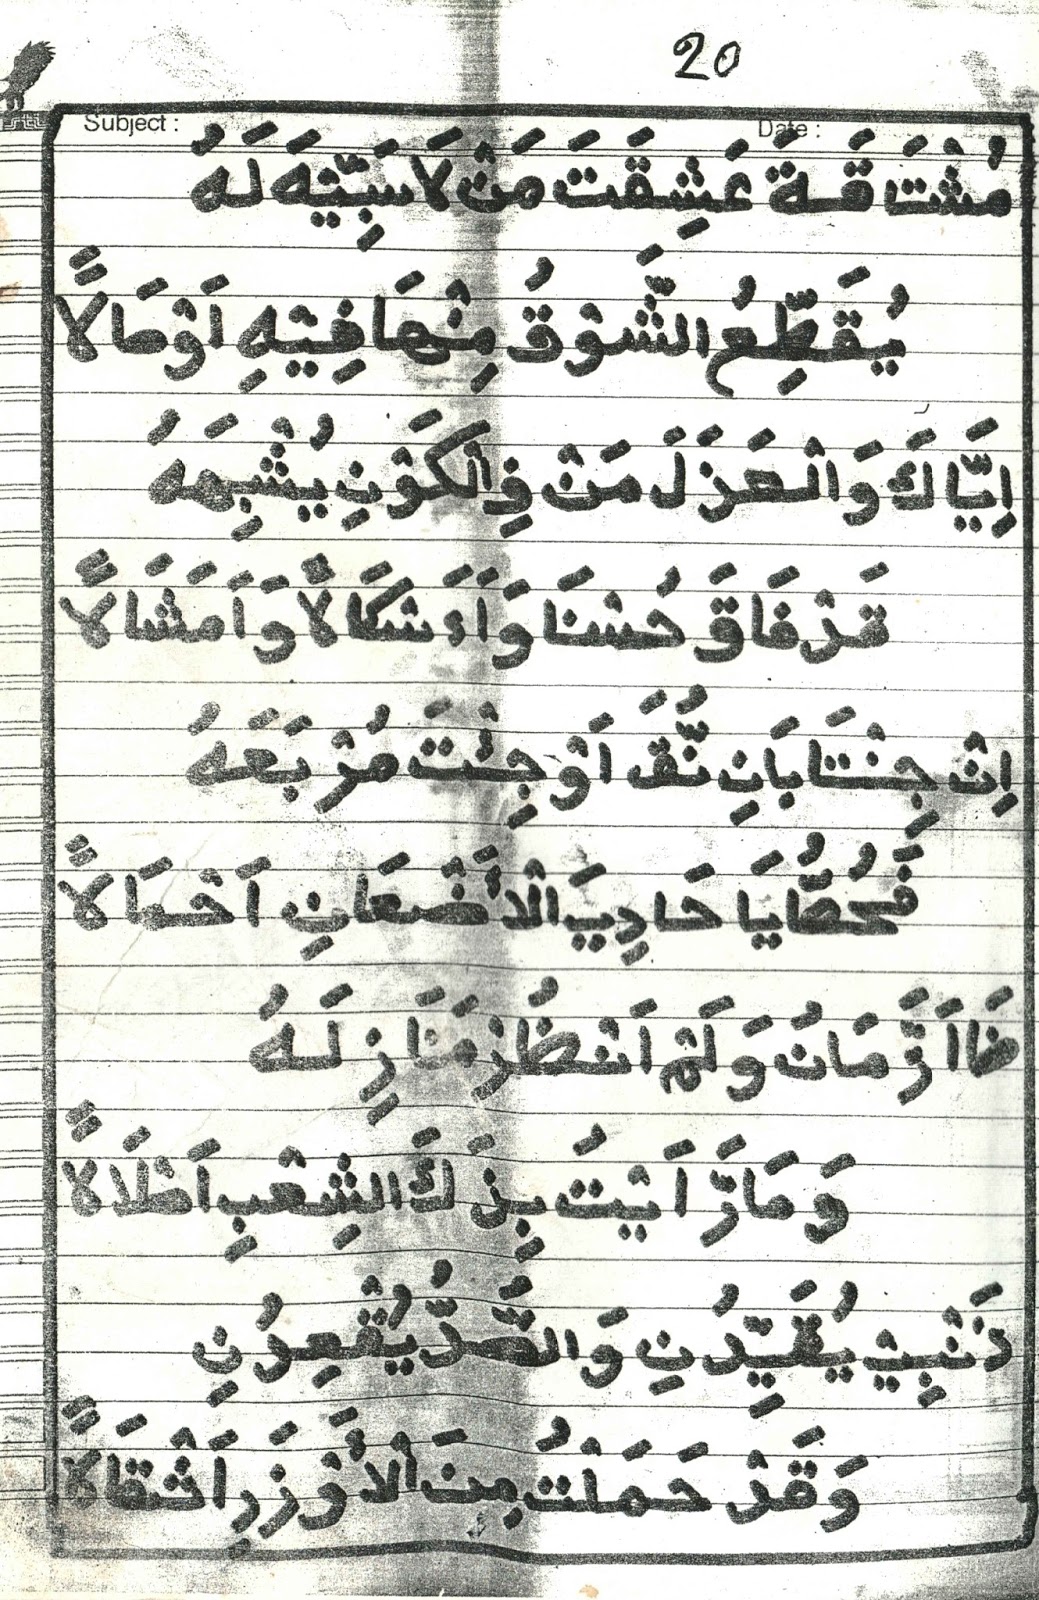 20
Subject :
Date :
مُشْتَاقَةً عَشِقَتَ مَنْ لَا سَبِّيَهَ لَهُ
يُقَطِّعُ الشَّوْقُ مِنْهَا فِيْهِ اَوْصَالًا
اِيَّاكَ وَالْعَزَلَ مَنْ فِى الْكَوْنِ يُشْبِهَهُ
قَدْ فَاقَ حُسْنَا وَاَءَشْكَالًا وَاَمَشَالًا
اِنْ جِنْتَا بَانِ نُّقَ اَوْ جِئْتَ مُرْبَعَهُ
فَحُطُّ يَا حَادِيَ الْاَضْعَانِ اَحْمَالًا
نَااَرَّمَانُ وَلَمْ اَنْظُرْ مَنَازِلَهُ
وَمَا رَّاَيْتُ بِذَ لَكَ الشِعْبِ اَطْلَالًا
ذَنْبِيْ يُقَيِّدُنِ وَالصَّدُّ يُقْعِدُنِ
وَقَدْ حَمَلْتُ مِنَ الْاَوْزَرِ اَثْقَالًا